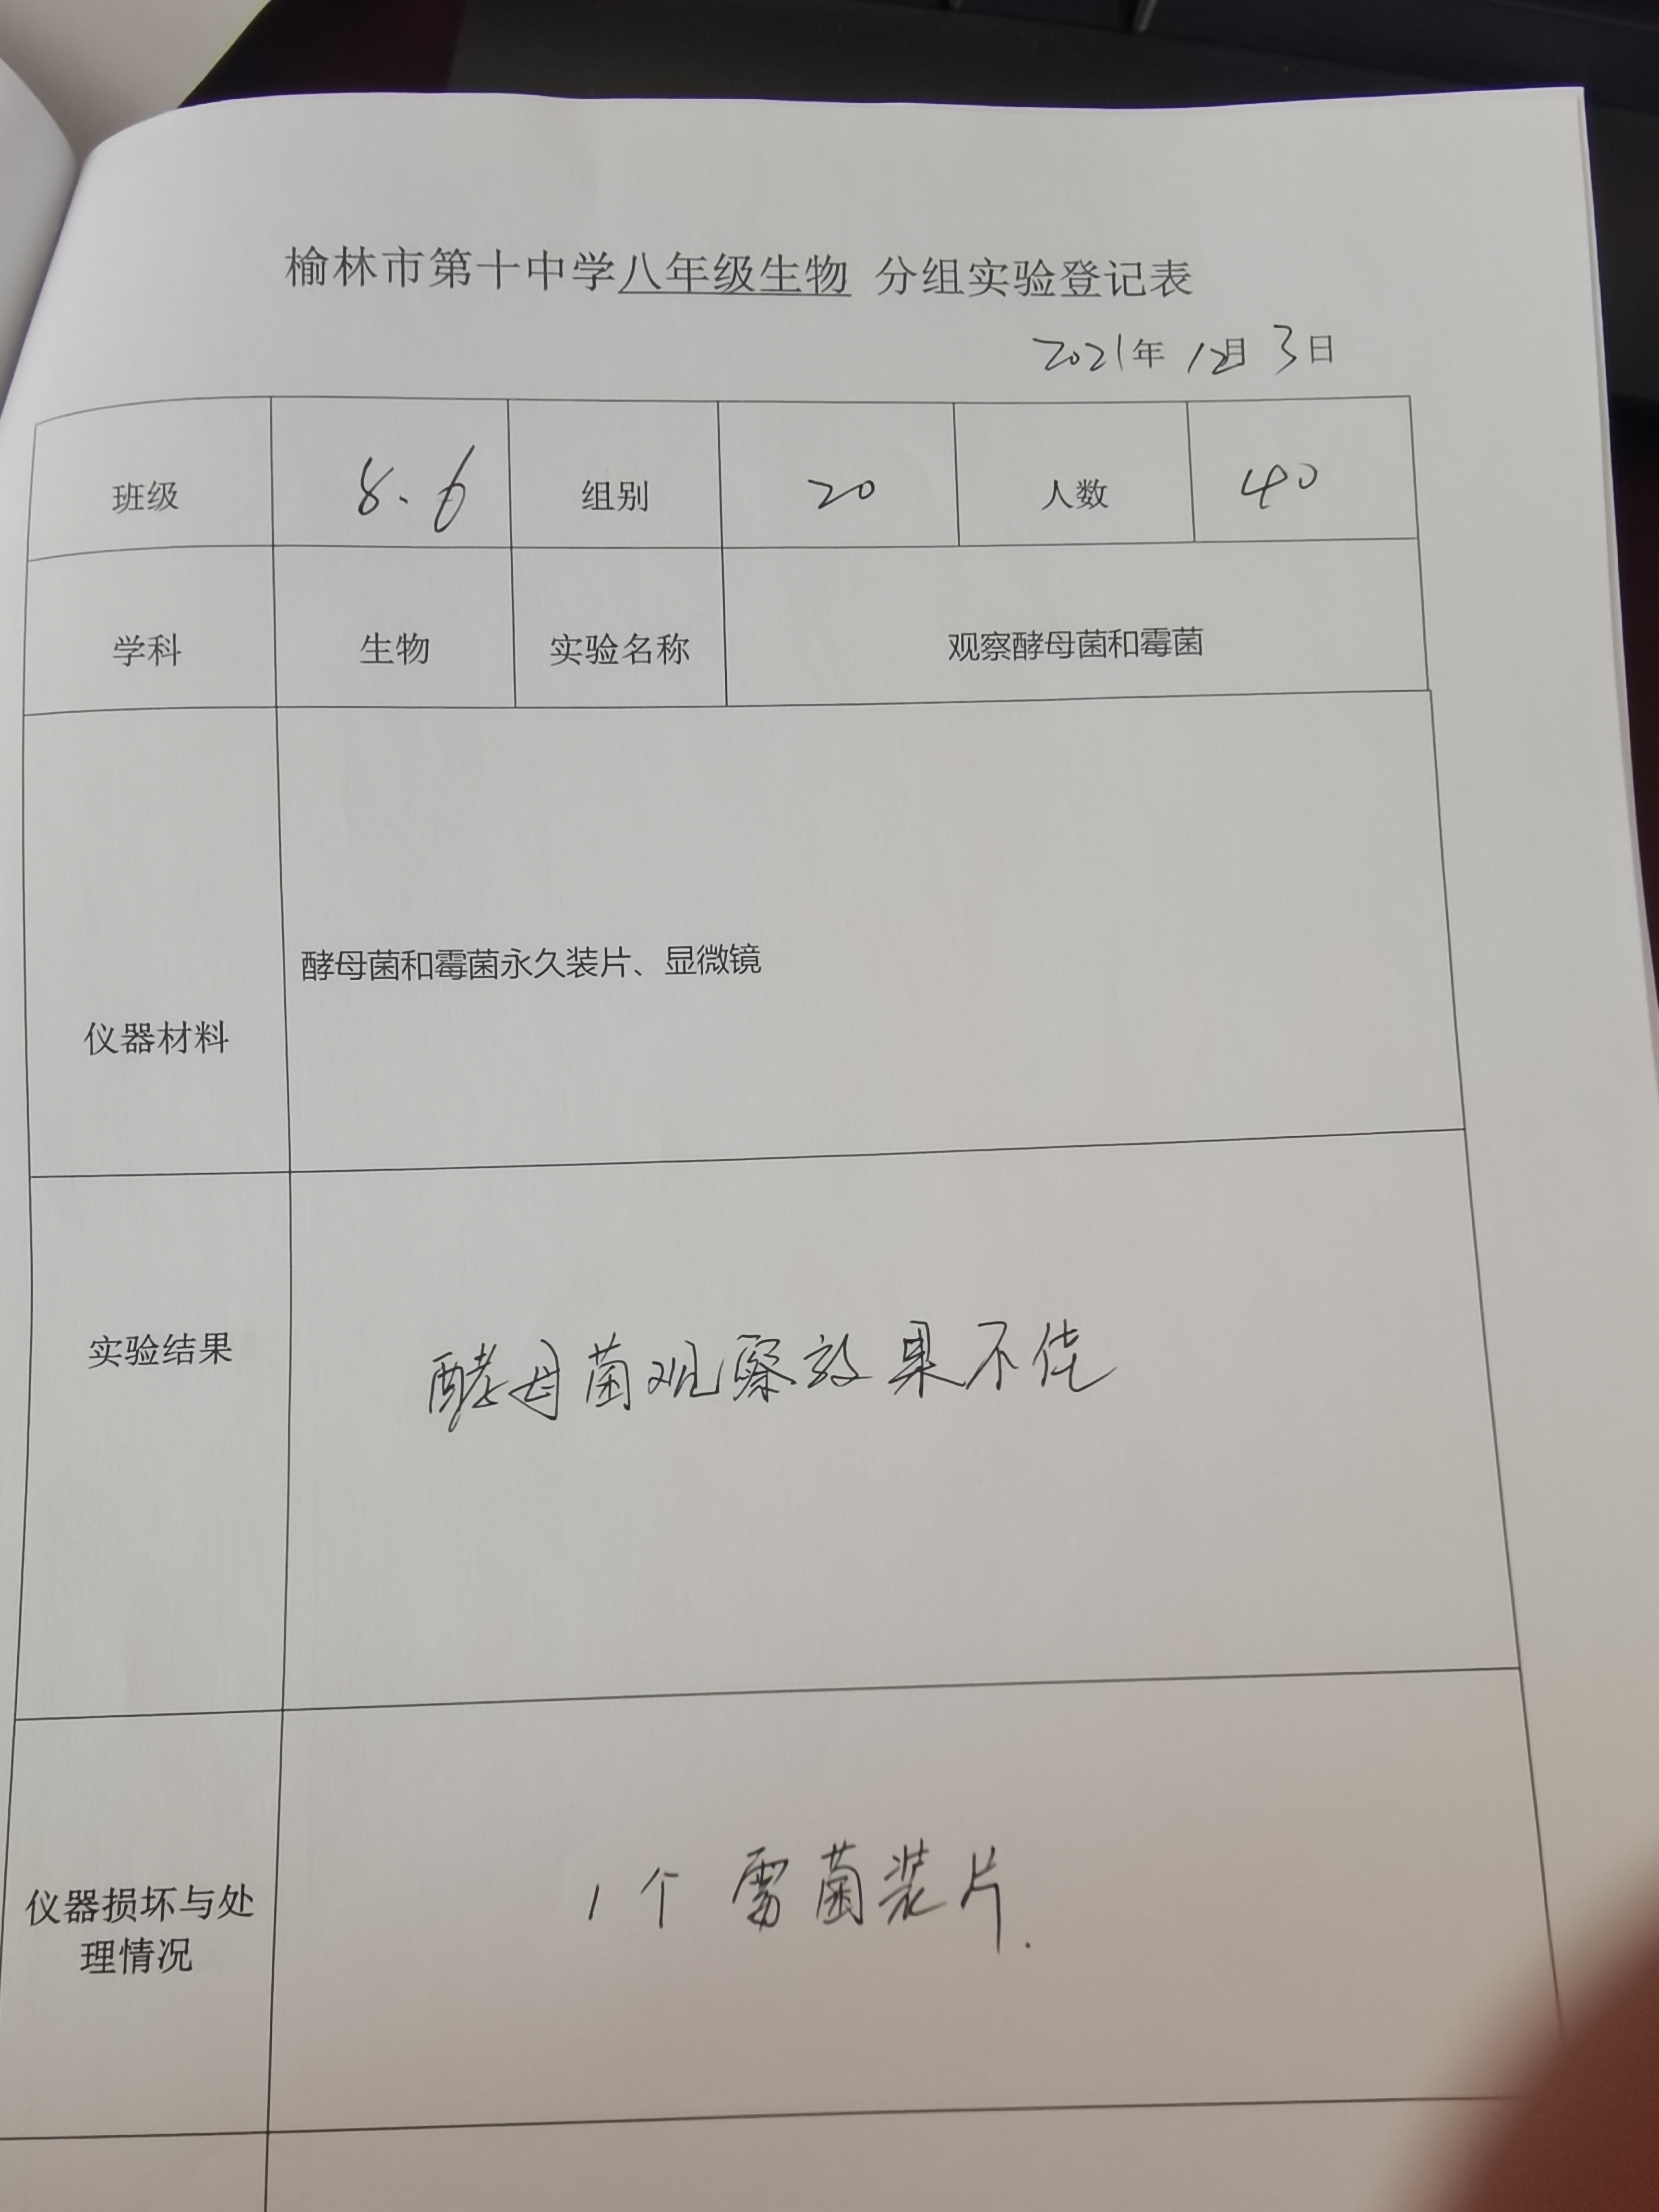 榆林市第十中学八年级生物 分组实验登记表
2021年 12月 3日
班级 8.6 组别 20 人数 40
学科 生物 实验名称 观察酵母菌和霉菌
仪器材料 酵母菌和霉菌永久装片、显微镜
实验结果 酵母菌观察效果不佳
仪器损坏与处
理情况 1个 霉菌装片.